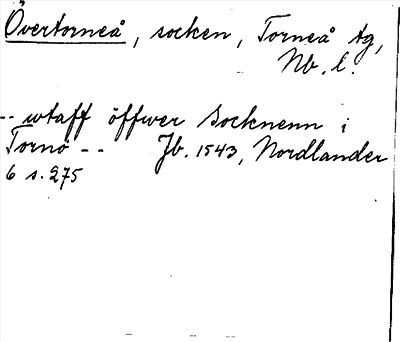 Övertorneå, socken, Torneå tg,
Nb. l.
-- wtaff öffwer Socknenn i
Torno -- Jb. 1543, Nordlander
6 s. 275